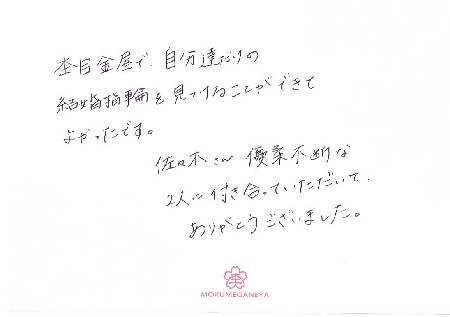 杢目金屋で、自分達だけの
結婚指輪を見つけることができて
よかったです。
佐々木さん 優柔不断な
2人に付き合っていただいて、
ありがとうございました。
MOKUMEGANEYA